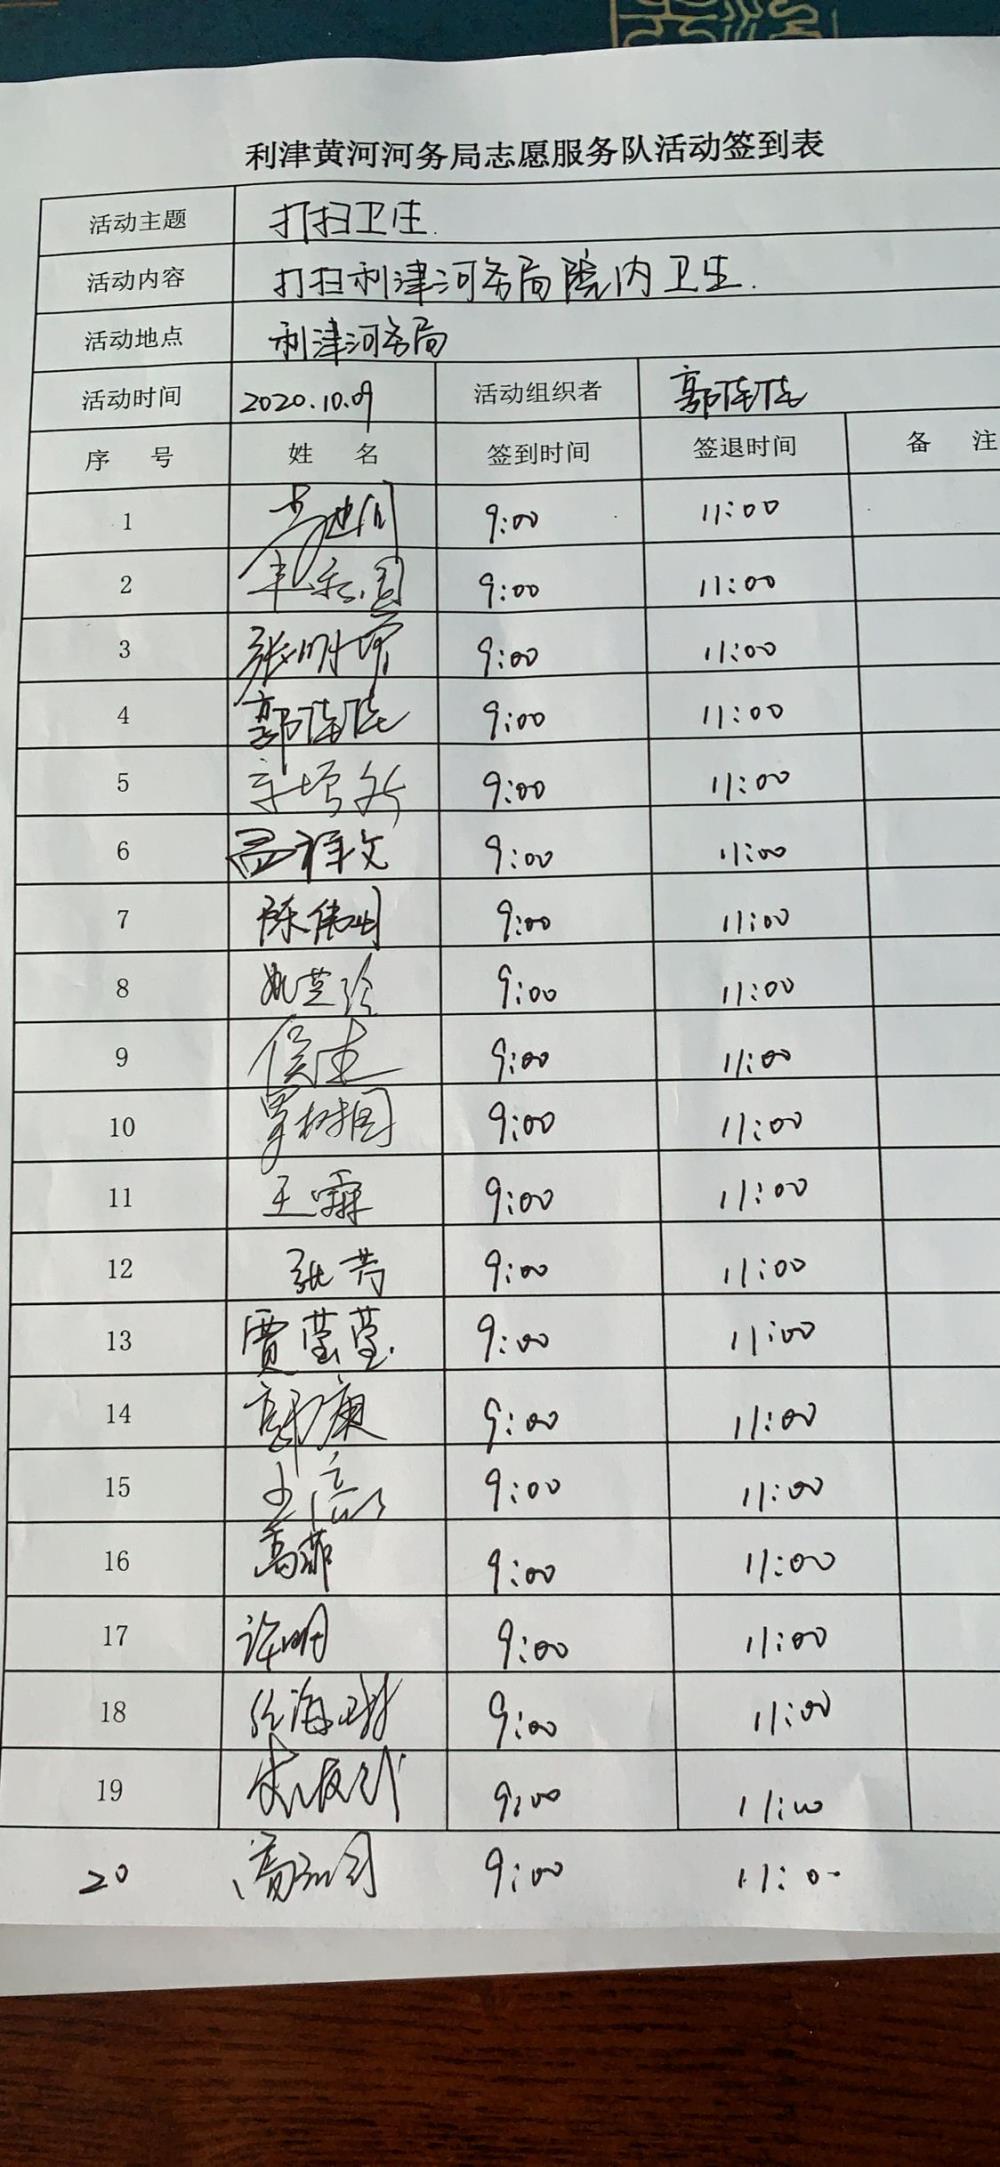 利津黄河河务局志愿服务队活动签到表
活动主题 打扫卫生.
活动内容 打扫利津河务局院内卫生.
活动地点 利津河务局
活动时间 2020.10.09 活动组织者 郭佳佳
序 号 姓 名 签到时间 签退时间 备 注
1 9:00 11:00
2 9:00 11:00
3 9:00 11:00
4 郭佳佳 9:00 11:00
5 9:00 11:00
6 9:00 11:00
7 陈伟明 9:00 11:00
8 9:00 11:00
9 9:00 11:00
10 9:00 11:00
11 王霖 9:00 11:00
12 张芳 9:00 11:00
13 贾莹莹 9:00 11:00
14 郭康 9:00 11:00
15 9:00 11:00
16 9:00 11:00
17 许明 9:00 11:00
18 9:00 11:00
19 9:00 11:00
20 9:00 11:00